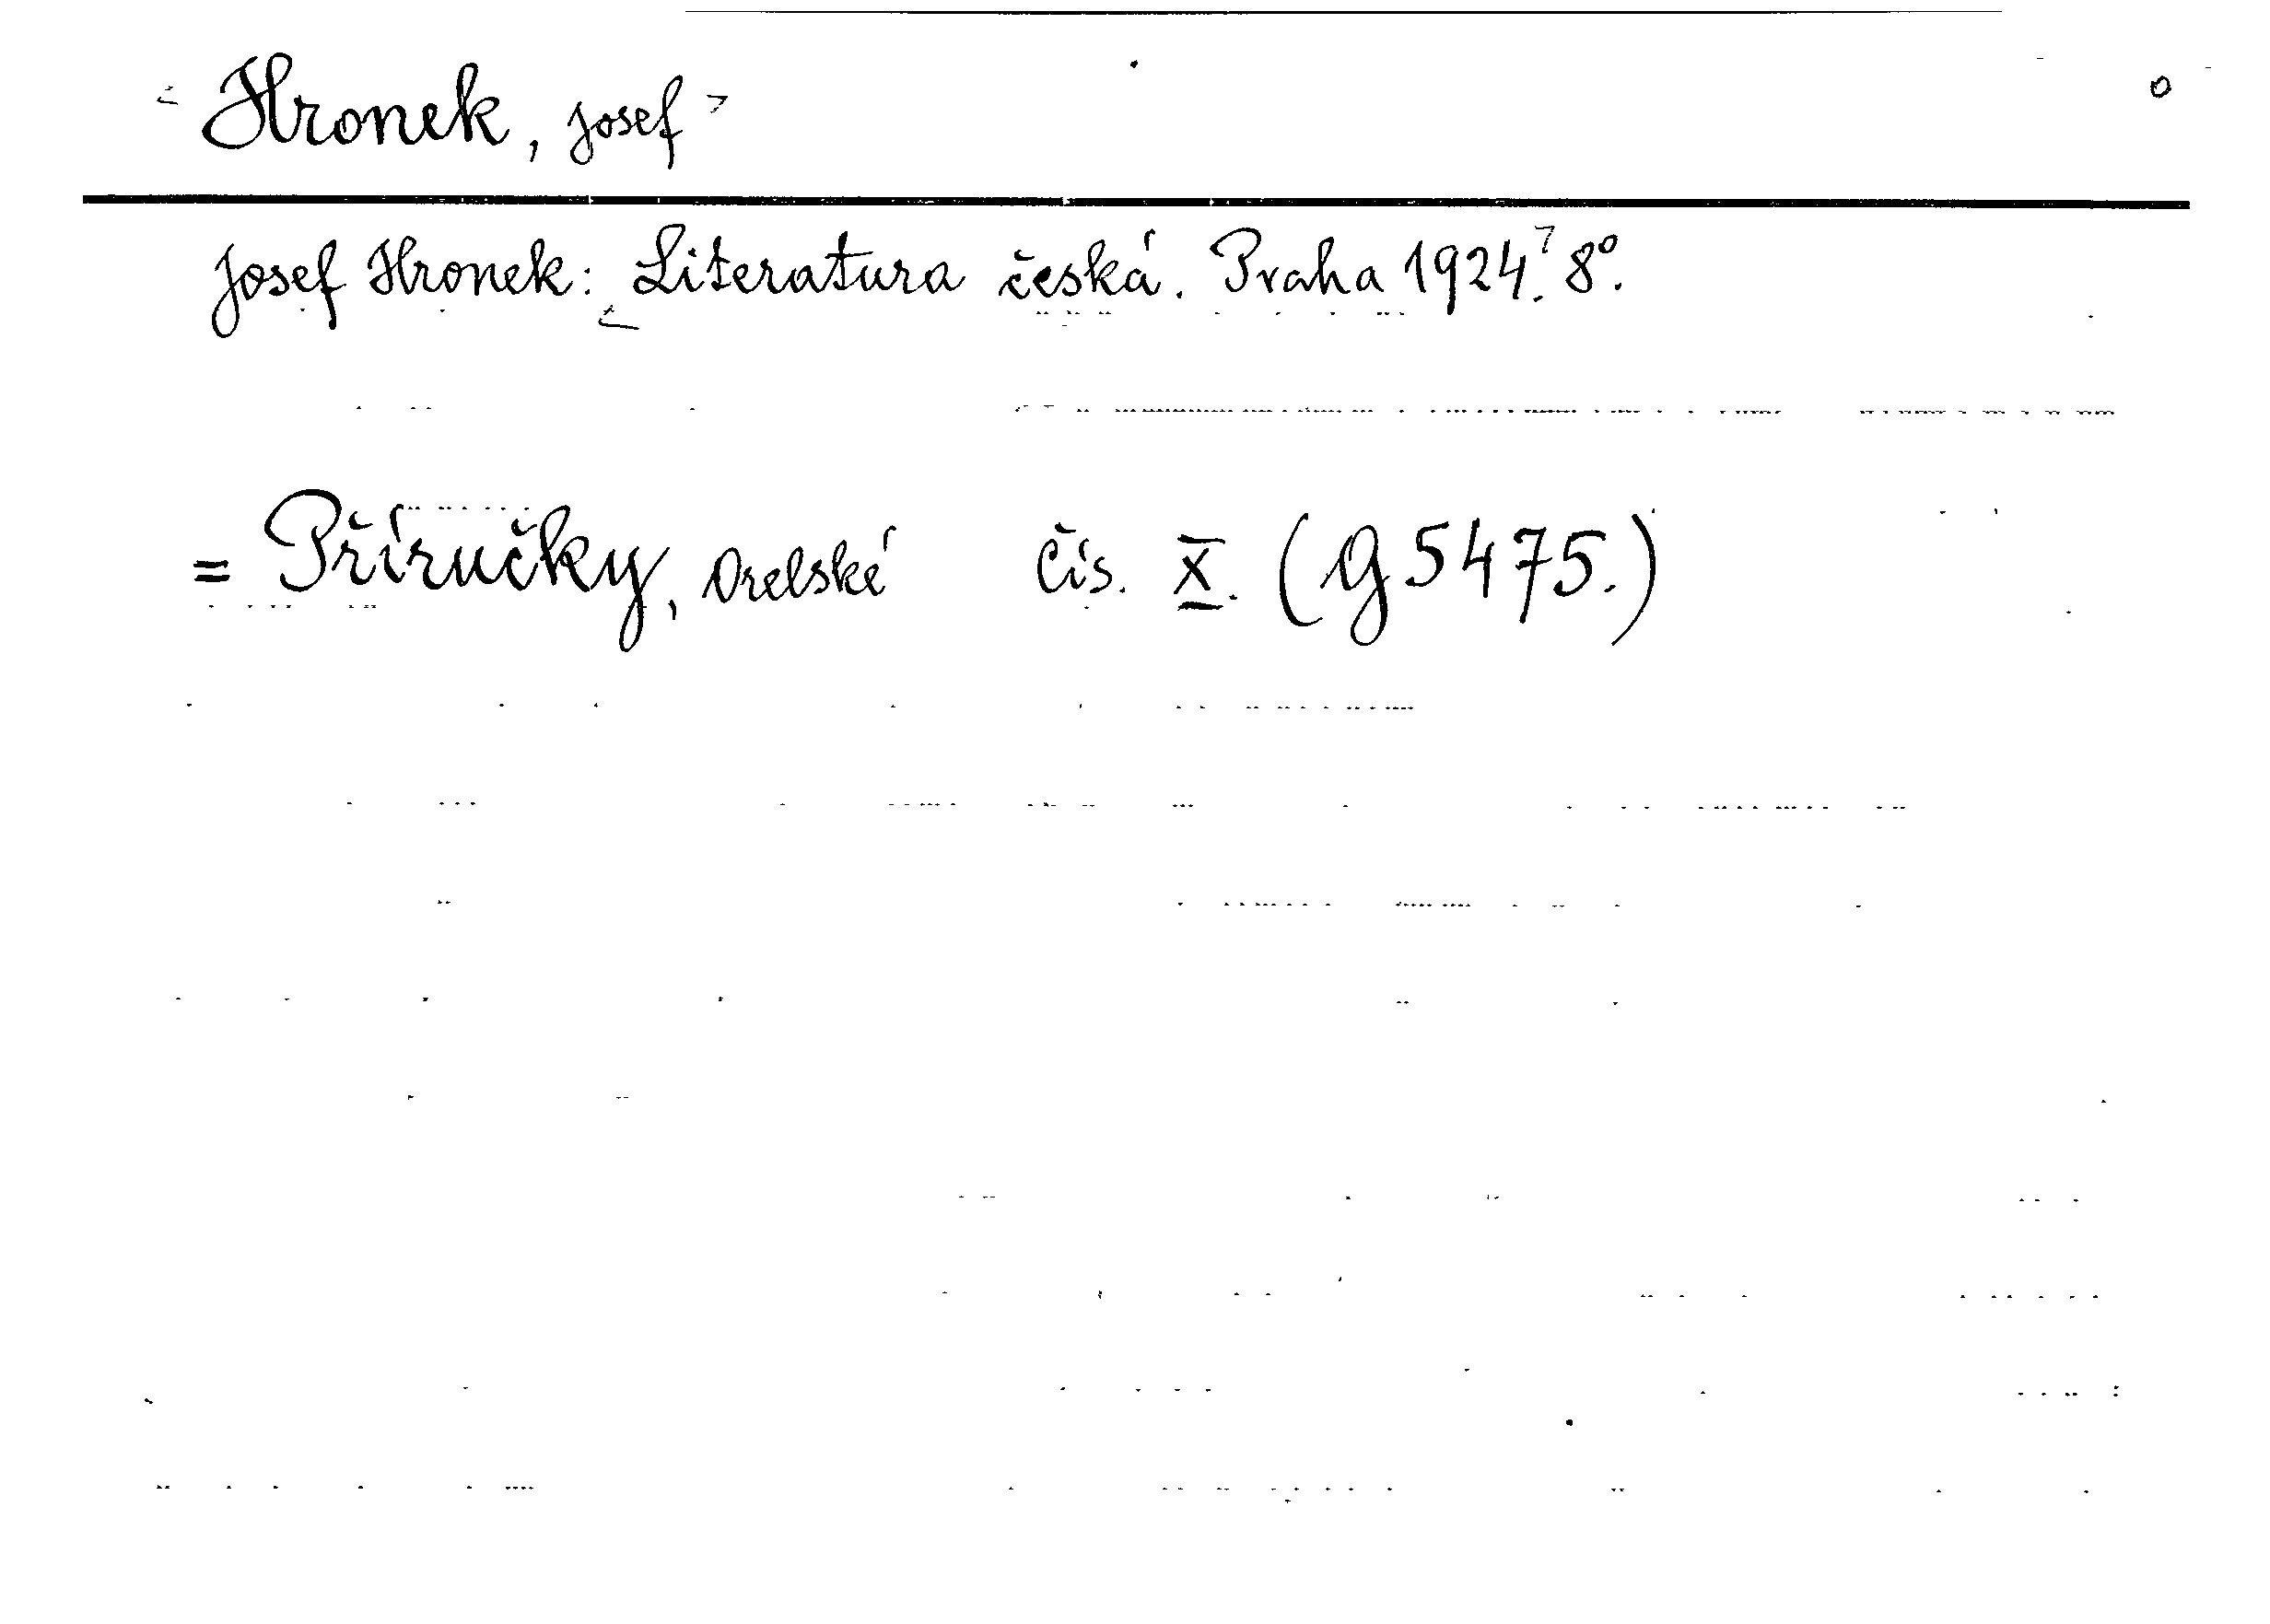 < Hronek, Josef > o
Josef Hronek: < Literatura česká. Praha 1924. > 8°.
= Příručky, Orelské čís. X. (G 5475.)